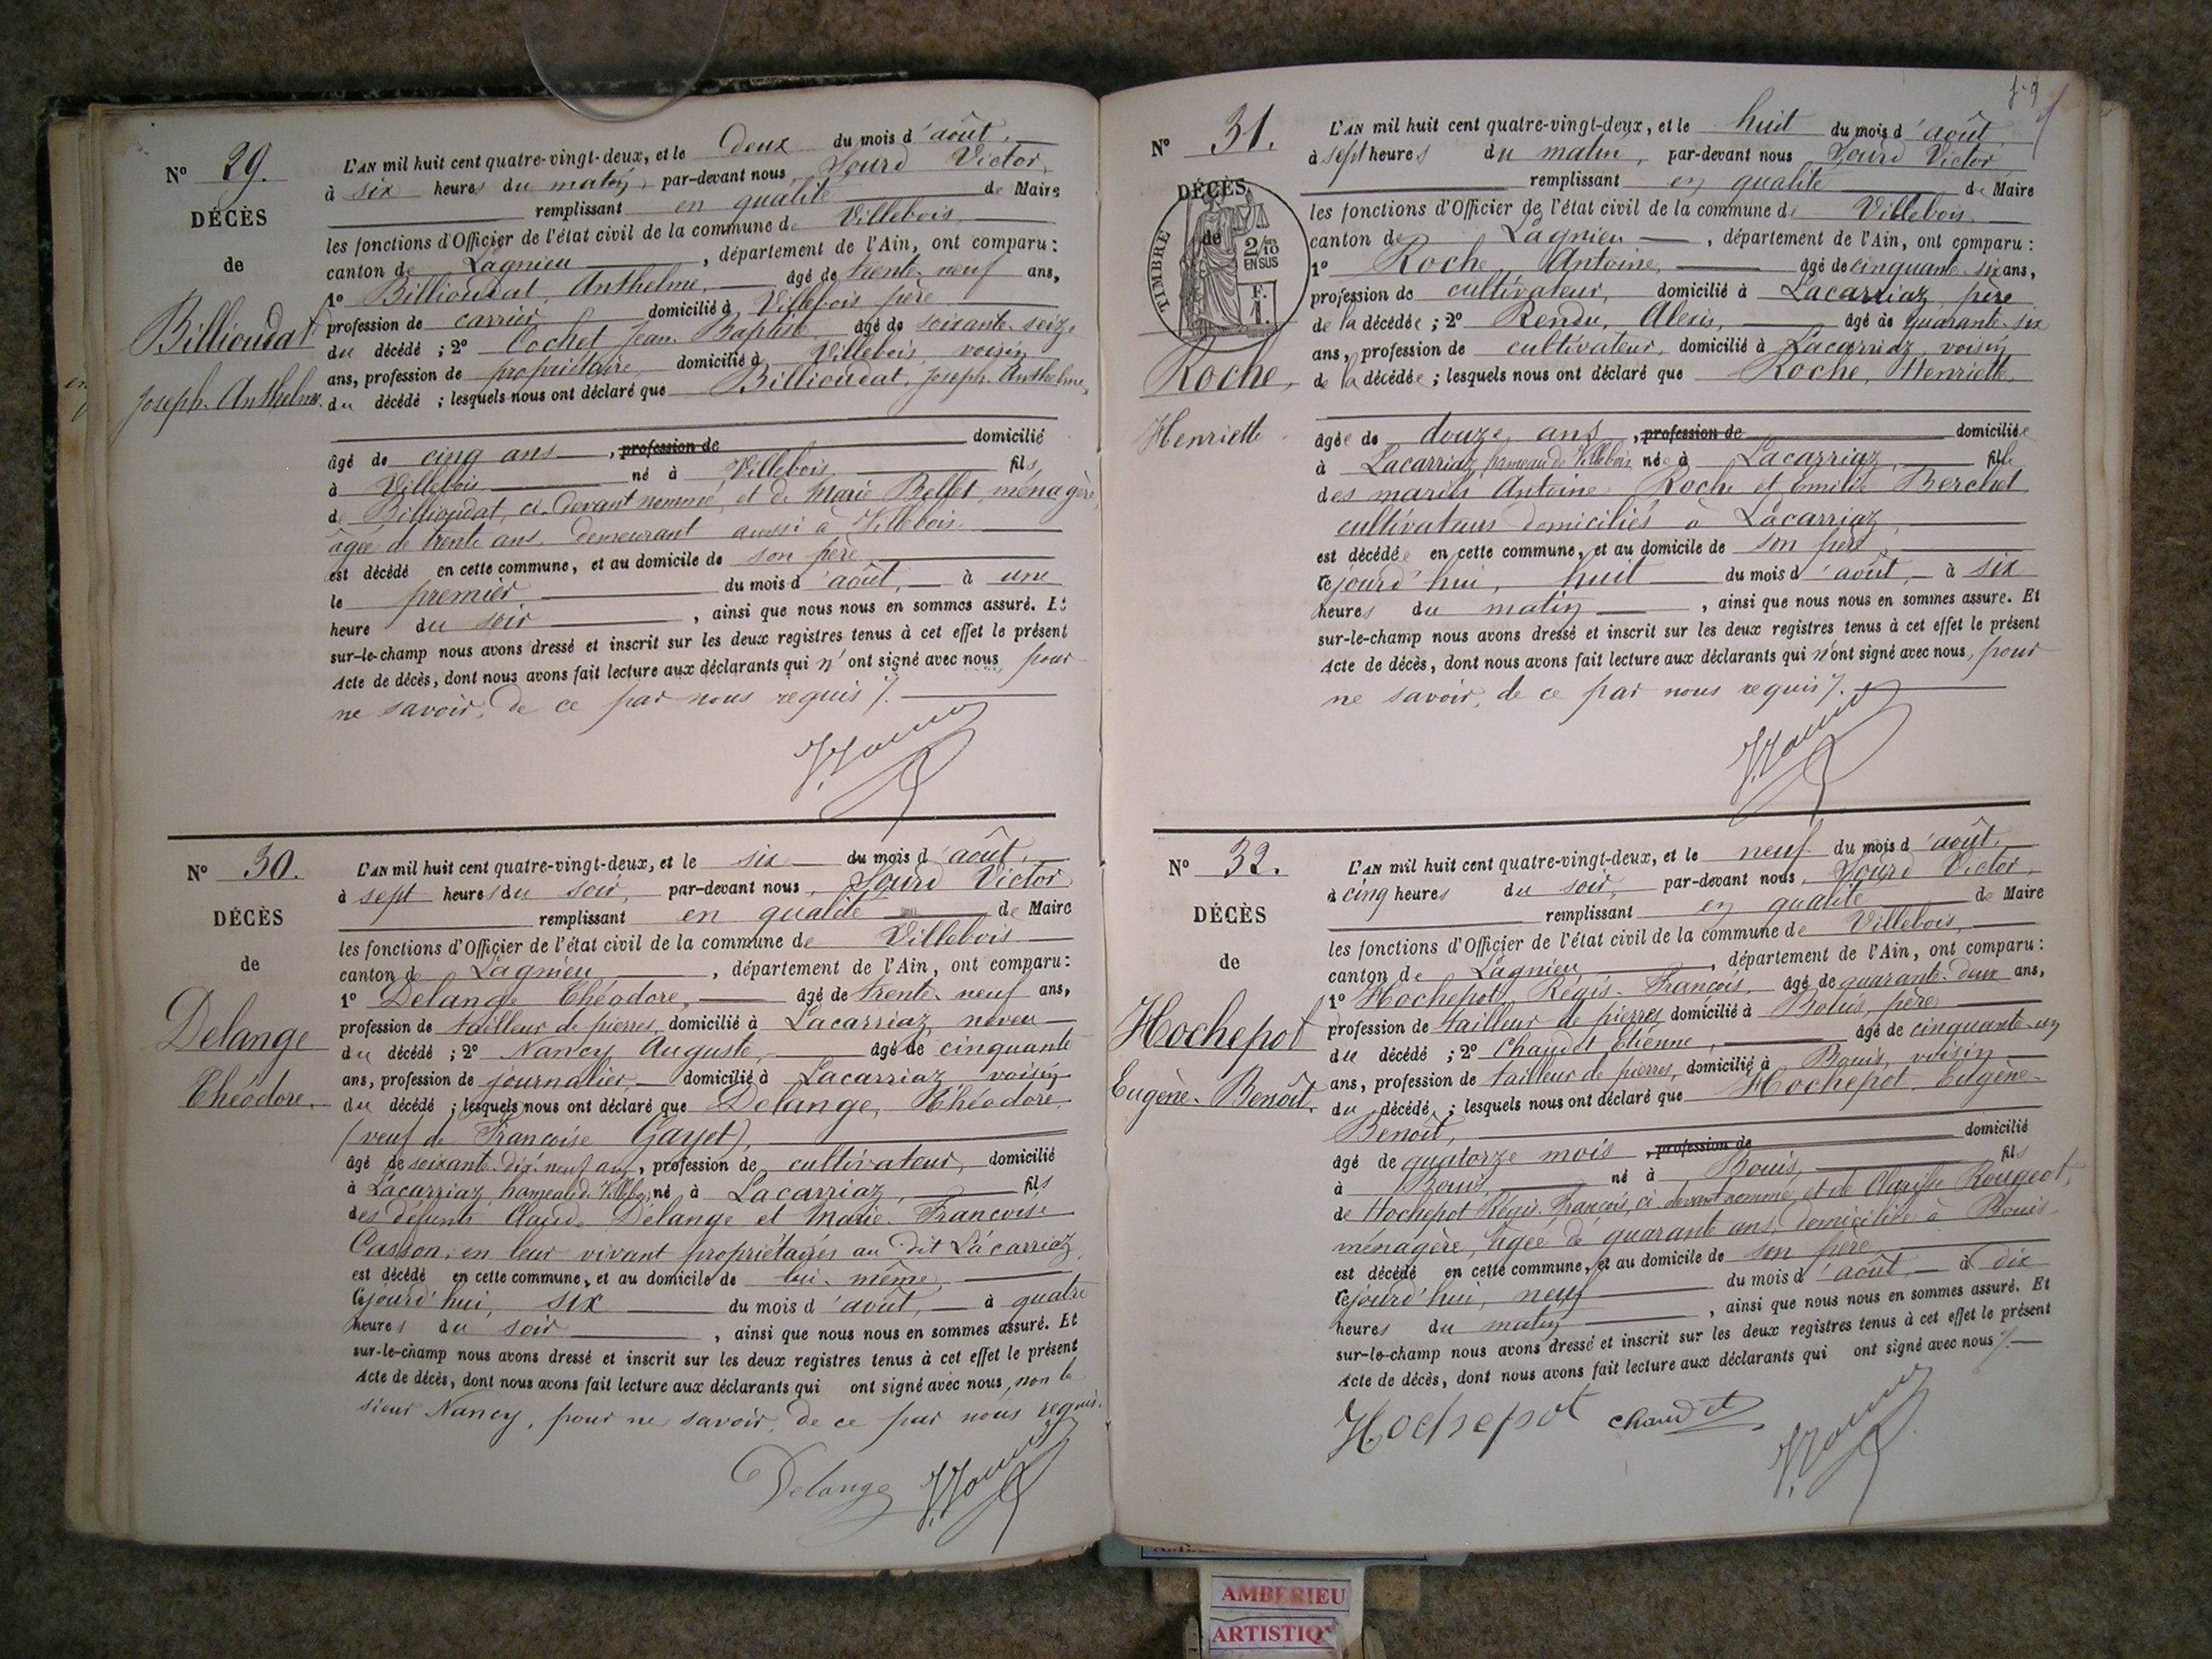 N° 29.
DÉCÈS
de
Billioudat
Joseph. Anthelme.
L'AN mil huit cent quatre-vingt-deux, et le deux du mois d'août,
à six heures du matin, par-devant nous, Sourd Victor,
remplissant en qualité de Maire
les fonctions d'Officier de l'état civil de la commune de Villebois
canton de Lagnieu, département de l'Ain, ont comparu:
1° Billioudat, Anthelme, âgé de trente-neuf ans,
profession de carrier domicilié à Villebois, père
du décédé; 2° Cochet Jean Baptiste âgé de soixante-seize
ans, profession de propriétaire, domicilié à Villebois, voisin
du décédé; lesquels nous ont déclaré que Billioudat, Joseph. Anthelme,
âgé de cinq ans, profession de domicilié
à Villebois né à Villebois fils
de Billioudat, ci-devant nommé, et de Marie Bellet, ménagère,
âgée de trente ans, demeurant aussi à Villebois.
est décédé en cette commune, et au domicile de son père
le premier du mois d'août, à une
heure du soir, ainsi que nous nous en sommes assuré. Et
sur-le-champ nous avons dressé et inscrit sur les deux registres tenus à cet effet le présent
Acte de décès, dont nous avons fait lecture aux déclarants qui n'ont signé avec nous pour
ne savoir, de ce par nous requis /.
N° 30.
DÉCÈS
de
Delange
Théodore.
L'AN mil huit cent quatre-vingt-deux, et le six du mois d'août,
à sept heures du soir, par-devant nous, Sourd Victor,
remplissant en qualité de Maire
les fonctions d'Officier de l'état civil de la commune de Villebois
canton de Lagnieu, département de l'Ain, ont comparu:
1° Delange Théodore, âgé de trente-neuf ans,
profession de tailleur de pierres, domicilié à Lacarriaz, neveu
du décédé; 2° Nancy Auguste, âgé de cinquante
ans, profession de journalier, domicilié à Lacarriaz, voisin
du décédé; lesquels nous ont déclaré que Delange, Théodore,
(veuf de Françoise Gayet),
âgé de soixante-dix-neuf ans, profession de cultivateur, domicilié
à Lacarriaz hameau de Villebois, né à Lacarriaz, fils
des défunts Claude Delange et Marie-Françoise
Casson, en leur vivant propriétaires au dit Lacarriaz,
est décédé en cette commune, et au domicile de lui-même,
cejourd'hui, six du mois d'août, à quatre
heures du soir, ainsi que nous nous en sommes assuré. Et
sur-le-champ nous avons dressé et inscrit sur les deux registres tenus à cet effet le présent
Acte de décès, dont nous avons fait lecture aux déclarants qui ont signé avec nous, non le
sieur Nancy, pour ne savoir, de ce par nous requis.
Delange
N° 31.
DÉCÈS
de
TIMBRE
2/10 EN SUS
Roche,
Henriette
L'AN mil huit cent quatre-vingt-deux, et le huit du mois d'août,
à sept heures du matin, par-devant nous Sourd Victor
remplissant en qualité de Maire
les fonctions d'Officier de l'état civil de la commune de Villebois,
canton de Lagnieu, département de l'Ain, ont comparu:
1° Roche, Antoine, âgé de cinquante-six ans,
profession de cultivateur, domicilié à Lacarriaz, père
de la décédée; 2° Rendu, Alexis, âgé de quarante-six
ans, profession de cultivateur, domicilié à Lacarriaz, voisin
de la décédée; lesquels nous ont déclaré que Roche, Henriette,
âgée de douze ans, profession de domiciliée
à Lacarriaz, hameau de Villebois née à Lacarriaz, fille
des mariés Antoine Roche et Emilie Berchet
cultivateurs domiciliés à Lacarriaz,
est décédée en cette commune, et au domicile de son père,
cejourd'hui, huit du mois d'août, à six
heures du matin, ainsi que nous nous en sommes assuré. Et
sur-le-champ nous avons dressé et inscrit sur les deux registres tenus à cet effet le présent
Acte de décès, dont nous avons fait lecture aux déclarants qui n'ont signé avec nous, pour
ne savoir, de ce par nous requis /.
N° 32.
DÉCÈS
de
Hochepot
Eugène-Benoît.
L'AN mil huit cent quatre-vingt-deux, et le neuf du mois d'août,
à cinq heures du soir, par-devant nous, Sourd Victor,
remplissant en qualité de Maire
les fonctions d'Officier de l'état civil de la commune de Villebois,
canton de Lagnieu, département de l'Ain, ont comparu:
1° Hochepot, Régis-François, âgé de quarante-deux ans,
profession de tailleur de pierres domicilié à Bouis, père
du décédé; 2° Chaudet Etienne, âgé de cinquante-un
ans, profession de tailleur de pierres, domicilié à Bouis, voisin
du décédé; lesquels nous ont déclaré que Hochepot, Eugène-
Benoît,
domicilié
âgé de quatorze mois, profession de
à Bouis né à Bouis, fils
de Hochepot Régis-François, ci-devant nommé, et de Clarisse Rougeot,
ménagère, âgée de quarante ans, domiciliée à Bouis
est décédé en cette commune, et au domicile de son père
cejourd'hui, neuf du mois d'août, à dix
heures du matin, ainsi que nous nous en sommes assuré. Et
sur-le-champ nous avons dressé et inscrit sur les deux registres tenus à cet effet le présent
Acte de décès, dont nous avons fait lecture aux déclarants qui ont signé avec nous /.
Hochepot Chaudet
AMBERIEU
ARTISTIQ